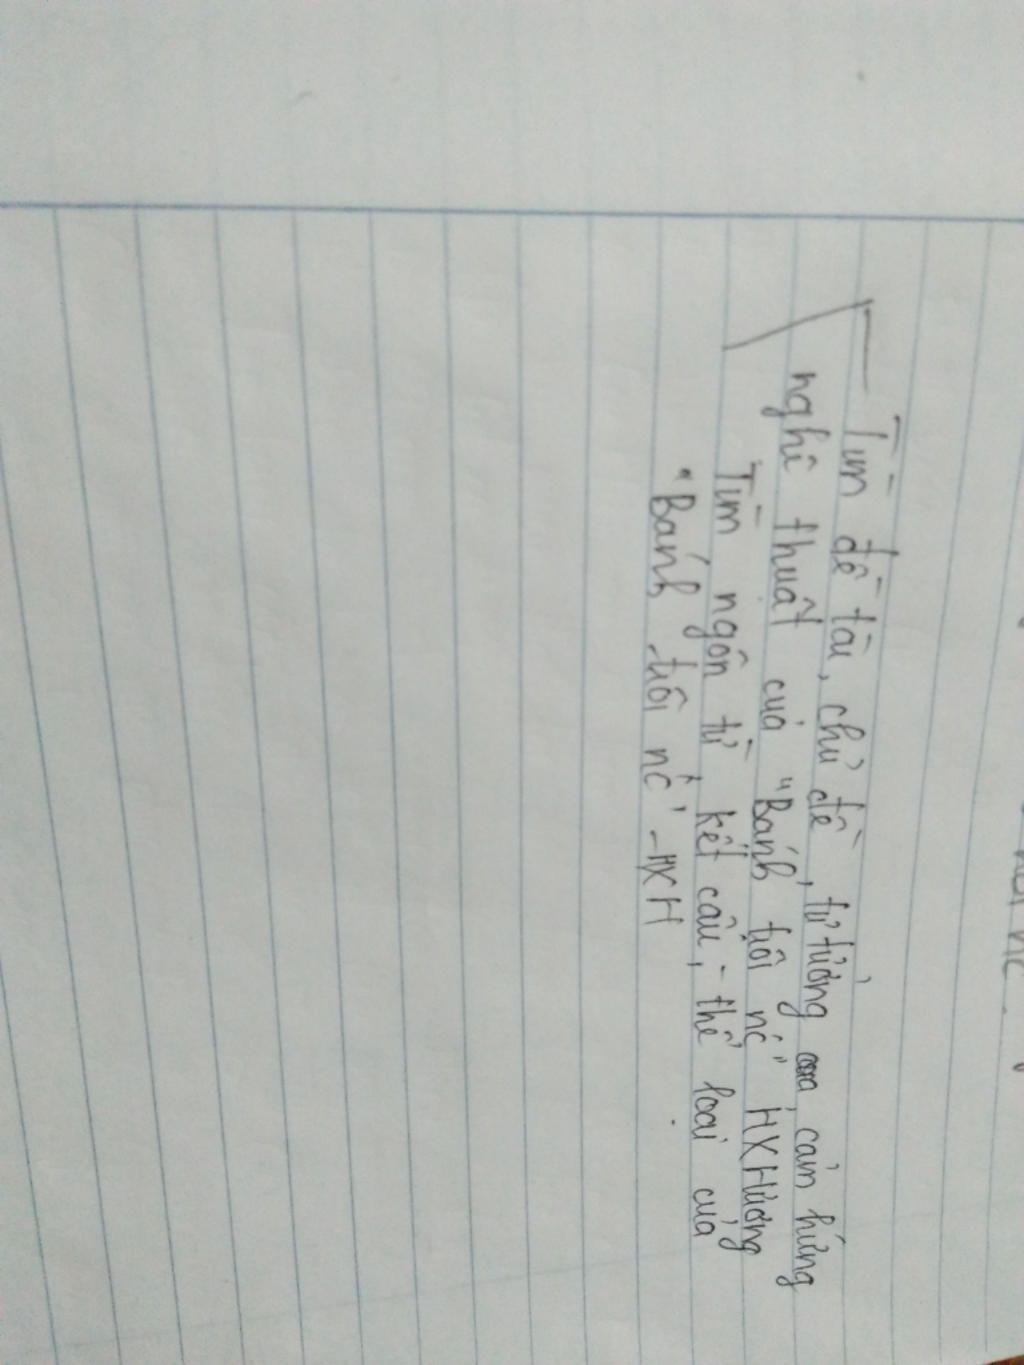 - Tìm đề tài, chủ đề, tư tưởng, cảm hứng
nghệ thuật của "Bánh trôi nc" HXHương
Tìm ngôn từ, kết cấu, - thể loại của
"Bánh trôi nc" - HXH